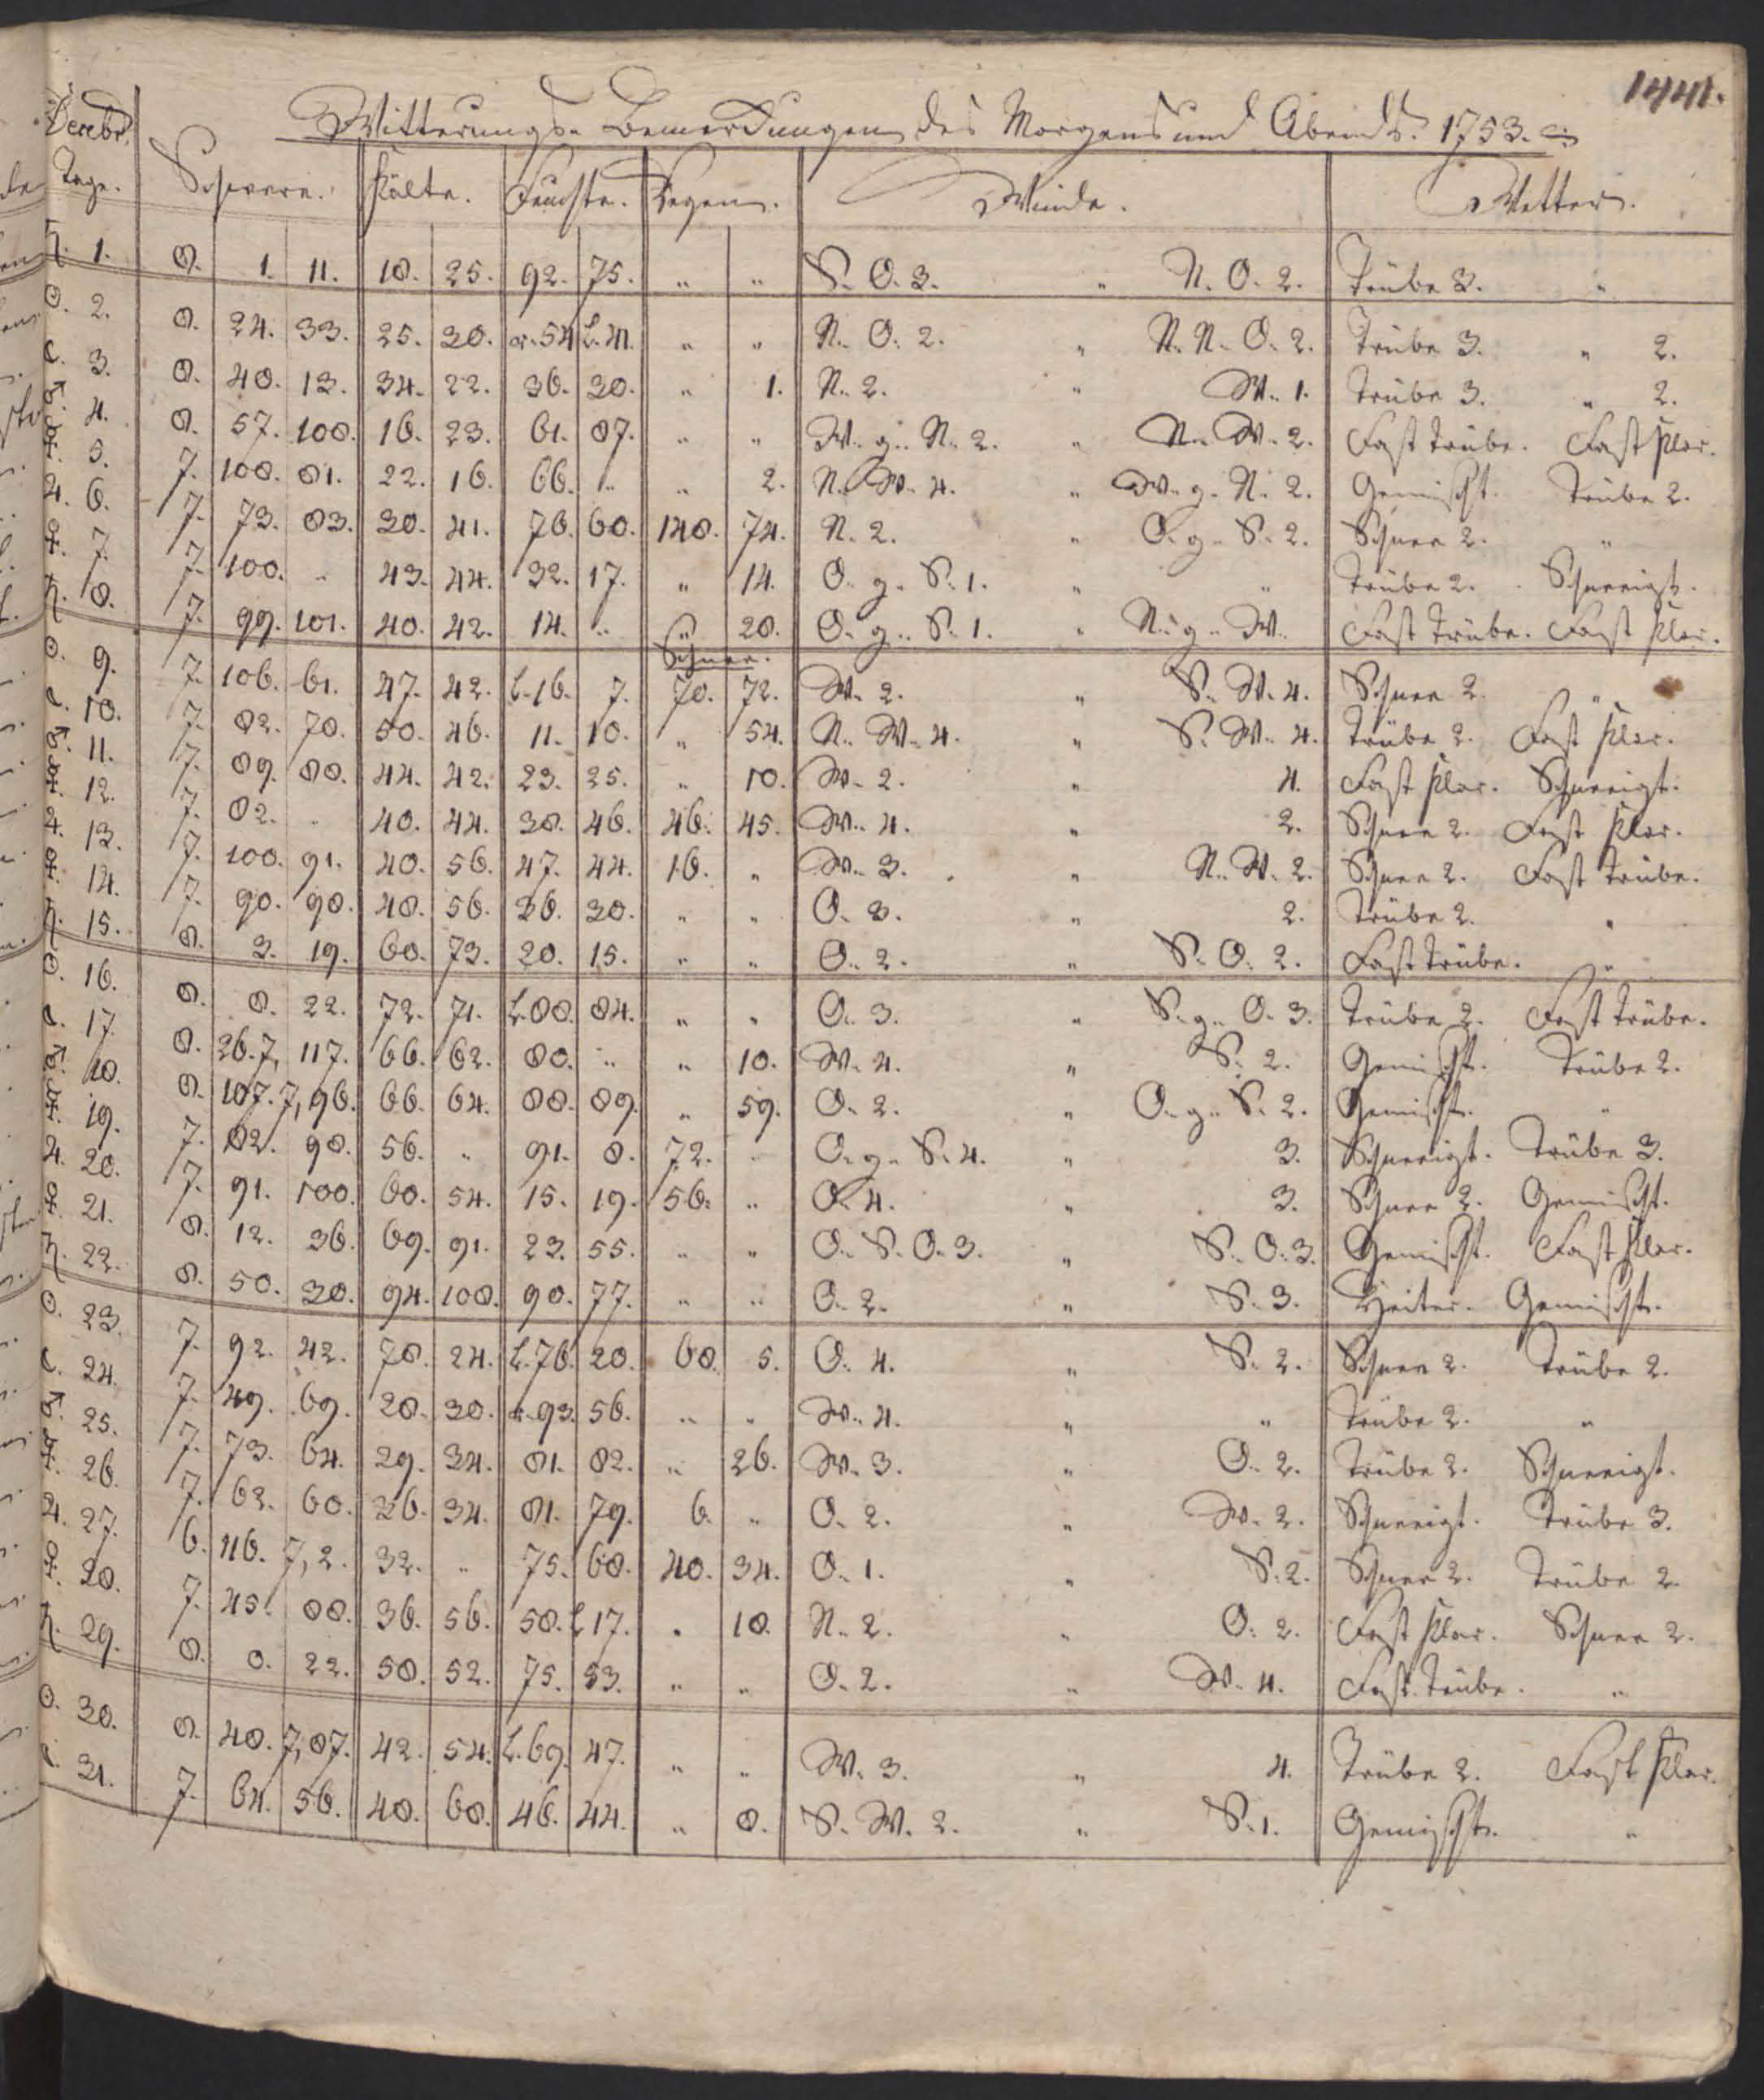 1441.
Witterungs-Bemerckungen des Morgens und Abends. 1753.
Decebr. Tage. Schwere. Kälte. Feuchte. Regen. Winde. Wetter.
♄. 1. 8. 1. 11. 18. 25. 92. 75. " " S. O. 3. " N. O. 2. Trübe 3. "
☉. 2. 8. 24. 33. 25. 30. r. 54 L. 41. " " N. O. 2. " N. N. O. 2. Trübe 3. " 2.
☾. 3. 8. 40. 13. 34. 22. 36. 30. " 1. N. 2. " W. 1. Trübe 3. " 2.
♂. 4. 8. 57. 108. 16. 23. 61. 87. " " W. g. N. 2. " N. W. 2. Fast trübe. Fast klar.
☿. 5. 7. 108. 81. 22. 16. 66. " " 2. N. W. 4. " W. g. N. 2. Gemischt. Trübe 2.
♃. 6. 7. 73. 83. 30. 41. 76. 60. 148. 74. N. 2. " O. g. S. 2. Schnee 2. "
♀. 7. 7. 100. " 43. 44. 32. 17. " 14. O. g. S. 1. " " Trübe 2. Schneeigt.
♄. 8. 7. 99. 101. 40. 42. 14. " " 28. O. g. S. 1. " N. g. W. Fast trübe. Fast klar.
Schnee.
☉. 9. 7. 106. 61. 47. 42. L. 16. 7. 70. 72. W. 2. " S. W. 4. Schnee 2. "
☾. 10. 7. 82. 70. 50. 46. 11. 10. " 54. N. W. 4. " S. W. 4. Trübe 2. Fast klar.
♂. 11. 7. 89. 88. 44. 42. 23. 25. " 10. W. 2. " 4. Fast klar. Schneeigt.
☿. 12. 7. 82. " 40. 44. 38. 46. 46. 45. W. 4. " 2. Schnee 2. Fast klar.
♃. 13. 7. 100. 91. 40. 56. 47. 44. 16. " W. 3. " N. W. 2. Schnee 2. Fast trübe.
♀. 14. 7. 90. 98. 48. 56. 36. 30. " " O. 3. " 2. Trübe 2. "
♄. 15. 8. 3. 19. 60. 73. 20. 15. " " O. 2. " S. O. 2. Fast trübe. "
☉. 16. 8. 8. 22. 72. 71. L. 88. 84. " " O. 3. " S. g. O. 3. Trübe 2. Fast trübe.
☾. 17. 8. 26. 7, 117. 66. 62. 80. " " 10. W. 4. " S. 2. Gemischt. Trübe 2.
♂. 18. 8. 107. 7, 96. 66. 64. 88. 89. " 59. O. 2. " O. g. S. 2. Gemischt. "
☿. 19. 7. 82. 98. 56. " 91. 8. 72. " O. g. S. 4. " 3. Schneeigt. Trübe 3.
♃. 20. 7. 91. 100. 60. 54. 15. 19. 56. " O. 4. " 3. Schnee 2. Gemischt.
♀. 21. 8. 12. 36. 69. 91. 23. 55. " " O. S. O. 3. " S. O. 3. Gemischt. Fast klar.
♄. 22. 8. 50. 30. 94. 108. 90. 77. " " O. 2. " S. 3. Heiter. Gemischt.
☉. 23. 7. 92. 42. 78. 24. L. 76. 20. 60. 5. O. 4. " S. 2. Schnee 2. Trübe 2.
☾. 24. 7. 49. 69. 28. 30. r. 93. 56. " " W. 4. " " Trübe 2. "
♂. 25. 7. 73. 64. 29. 34. 81. 82. " 26. W. 3. " O. 2. Trübe 2. Schneeigt.
☿. 26. 7. 62. 60. 36. 34. 81. 79. 6. " O. 2. " W. 2. Schneeigt. Trübe 3.
♃. 27. 6. 116. 7, 2. 32. " 75. 68. 40. 34. O. 1. " S. 2. Schnee 2. Trübe 2.
♀. 28. 7. 45. 88. 36. 56. 58. L 17. " 18. N. 2. " O. 2. Fast klar. Schnee 2.
♄. 29. 8. 0. 22. 58. 52. 75. 53. " " O. 2. " W. 4. Fast trübe. "
☉. 30. 8. 40. 7, 87. 42. 54. L. 69. 47. " " W. 3. " 4. Trübe 2. Fast klar.
☾. 31. 7. 64. 56. 48. 68. 46. 44. " 8. S. W. 2. " S. 1. Gemischt. "